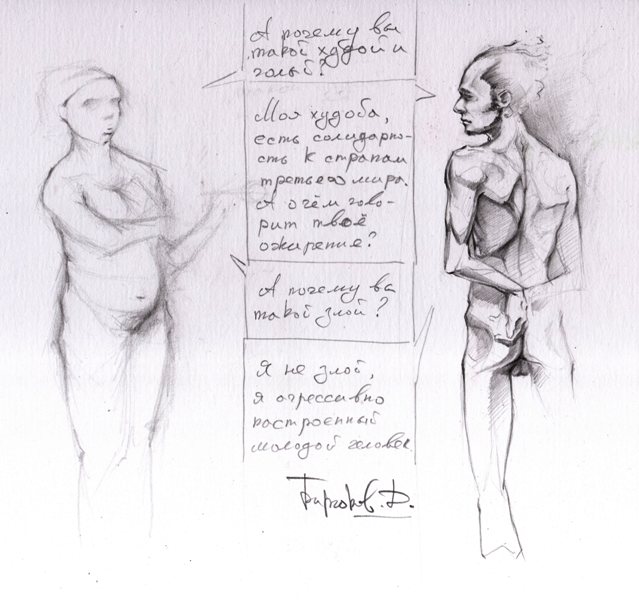 А почему вы
такой худой и
голый?
Моя худоба,
есть солидарно-
сть к странам
третьего мира.
А о чём гово-
рит твоё
ожирение?
А почему вы
такой злой?
Я не злой,
я агрессивно
настроенный
молодой человек